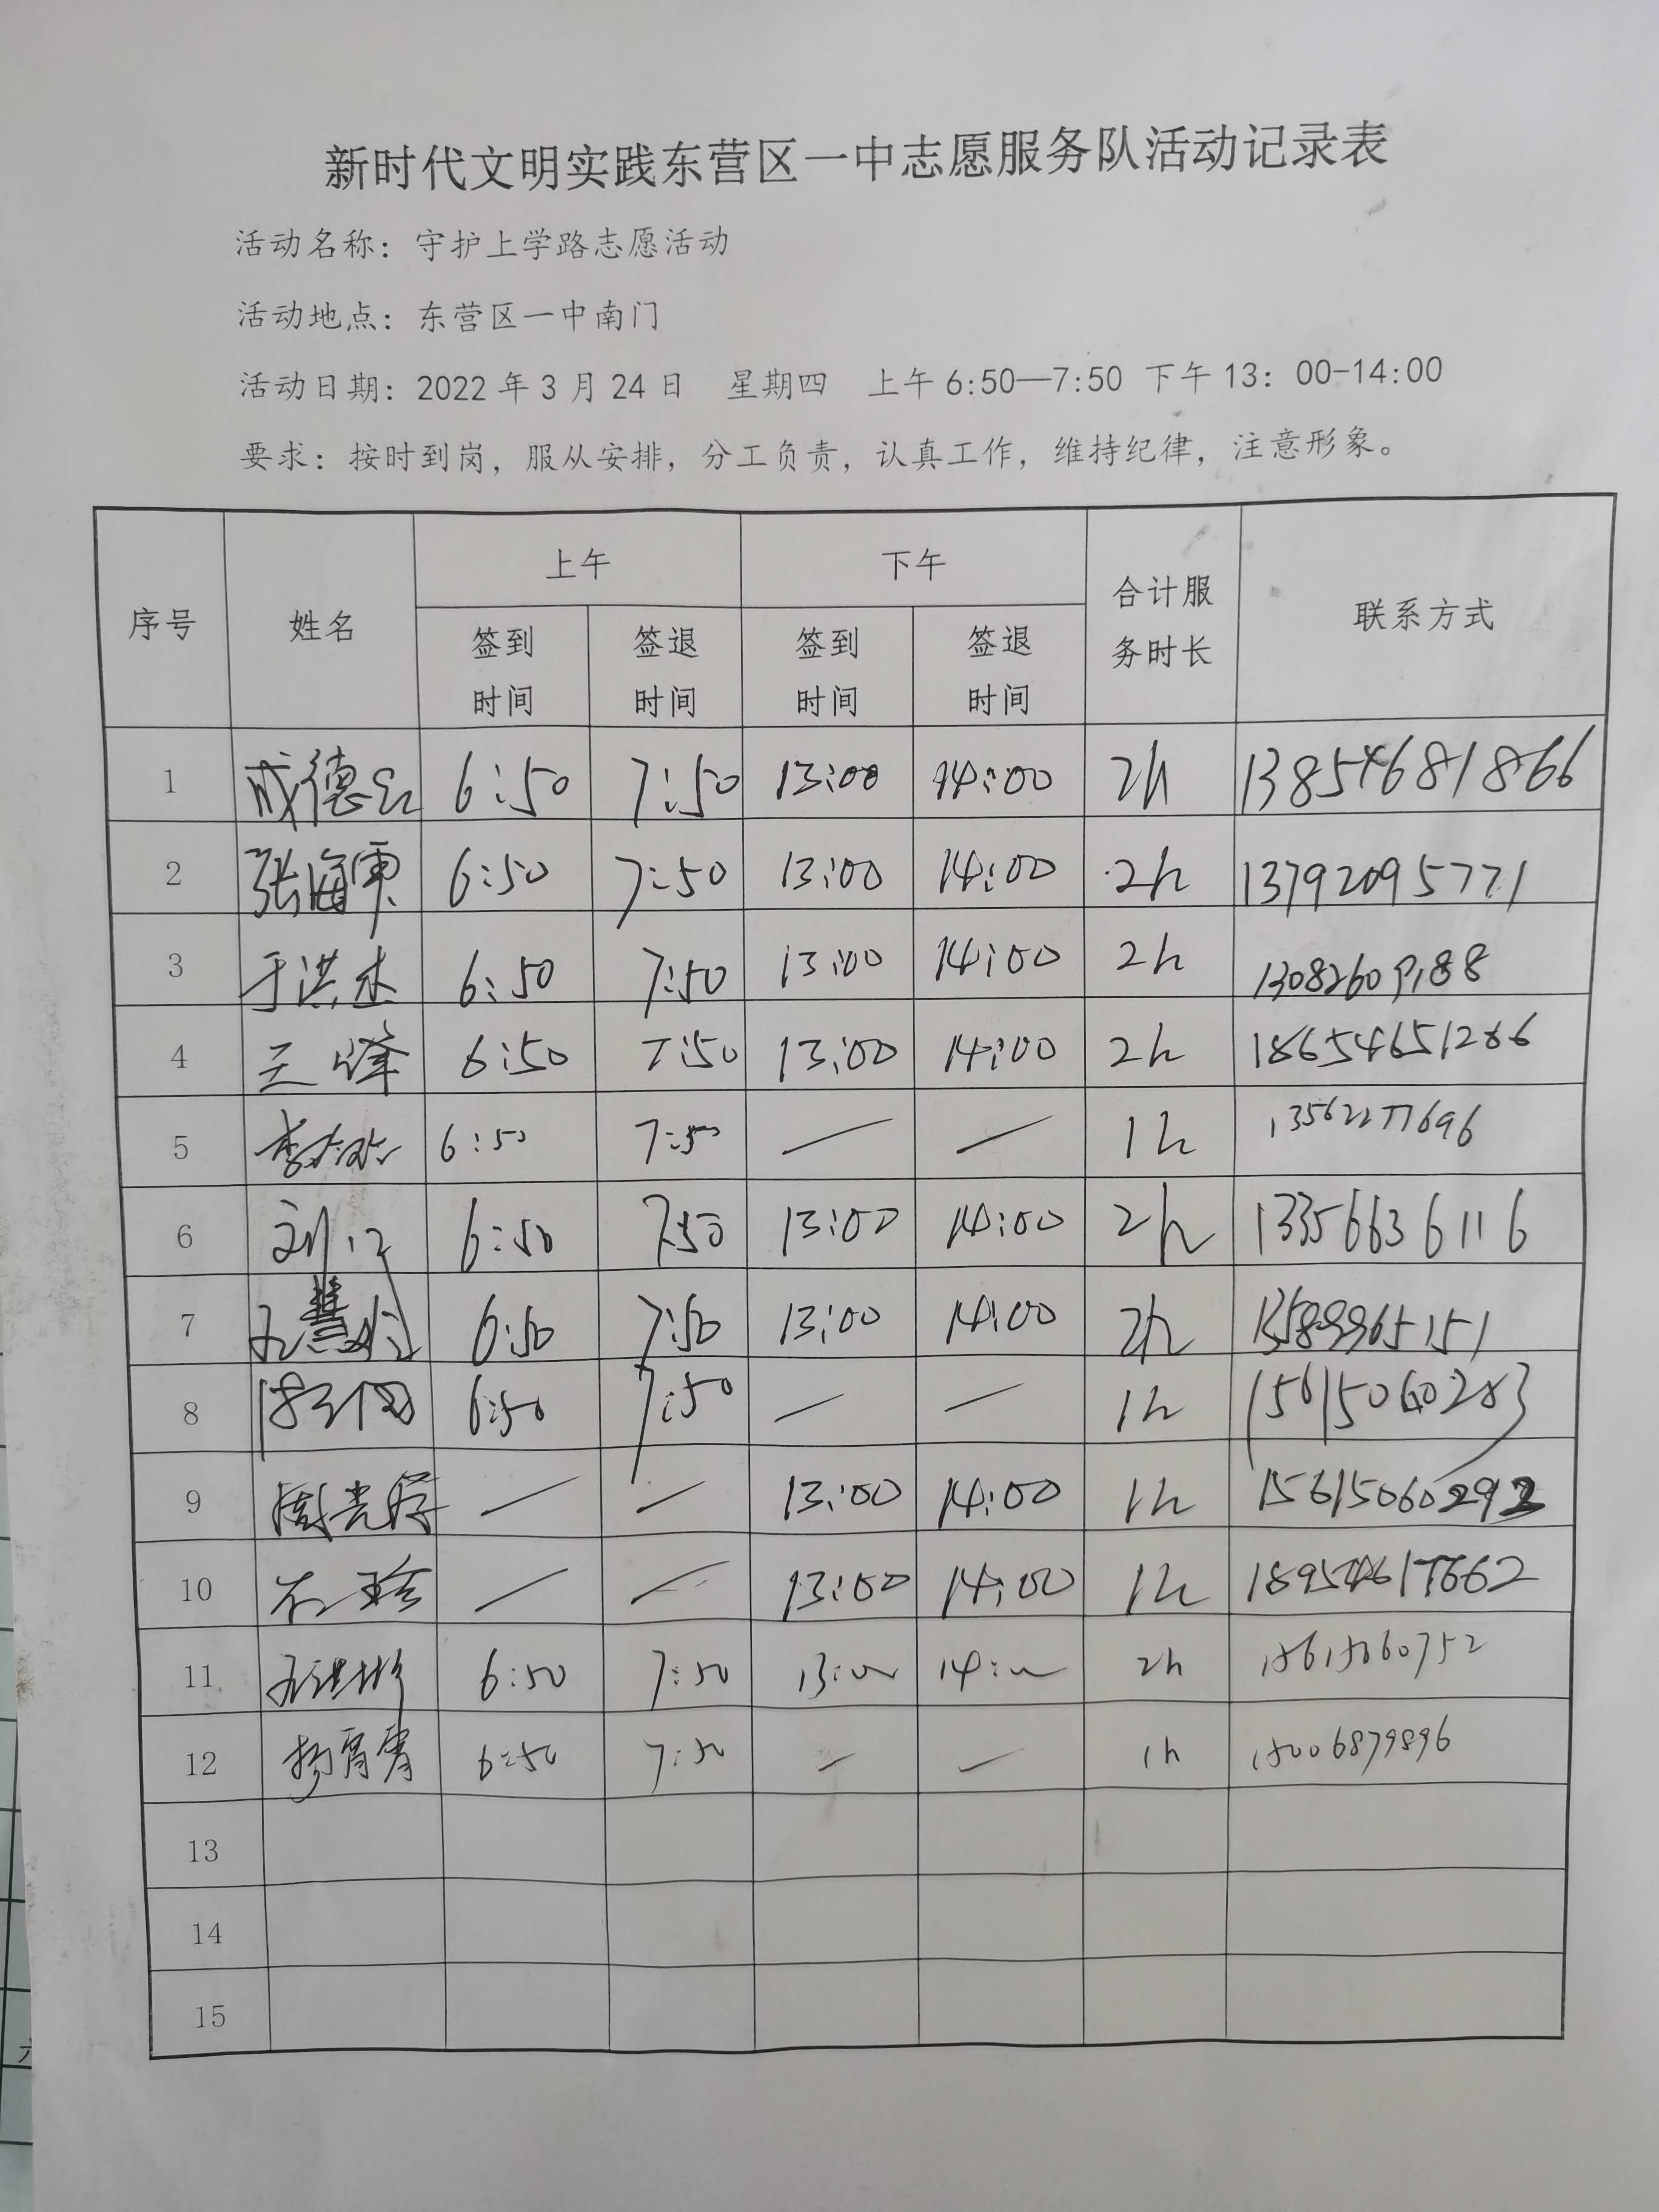 新时代文明实践东营区一中志愿服务队活动记录表
活动名称：守护上学路志愿活动
活动地点：东营区一中南门
活动日期：2022年3月24日 星期四 上午6:50—7:50 下午13：00-14:00
要求：按时到岗，服从安排，分工负责，认真工作，维持纪律，注意形象。
序号 姓名 上午 下午 合计服务时长 联系方式
签到时间 签退时间 签到时间 签退时间
1 6:50 7:50 13:00 14:00 2h 13854681866
2 张海霞 6:50 7:50 13:00 14:00 2h 13792095771
3 于洪杰 6:50 7:50 13:00 14:00 2h 13082609188
4 王峰 6:50 7:50 13:00 14:00 2h 18654651286
5 6:50 7:50 — — 1h 13562277696
6 6:50 7:50 13:00 14:00 2h 13356636116
7 6:50 7:50 13:00 14:00 2h 13589965151
8 6:50 7:50 — — 1h
9 — — 13:00 14:00 1h
10 — — 13:00 14:00 1h
11 6:50 7:50 13:00 14:00 2h 15615060752
12 杨霄霄 6:50 7:50 — — 1h 15006879896
13
14
15